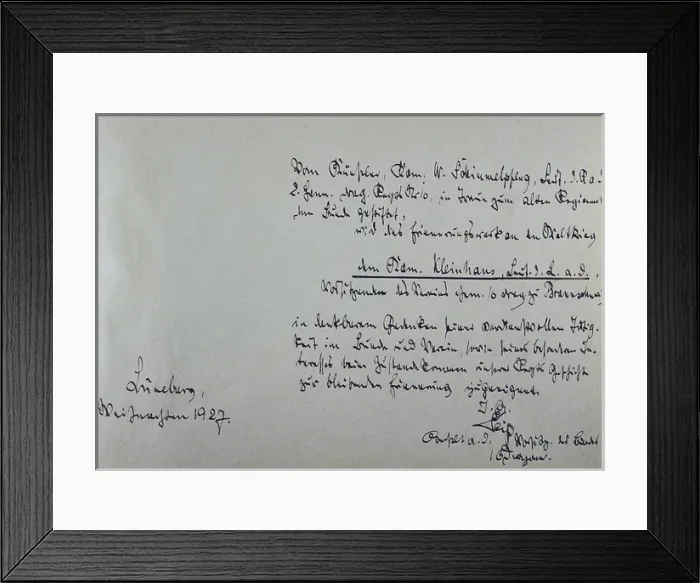 Vom Künstler, Kam. W. Schimmelpfeng, Leut. d. R. a. D.
2. Hann. Drag. Regts Nr 16, in Treue zum alten Regiment
dem Bunde gestiftet,
wird das Erinnerungswerk an den Weltkrieg
dem Kam. Kleinhans, Leut. d. L. a. D.
Vorsitzenden des Vereins ehem. 16 Drag. zu Braunschw
in dankbarem Gedenken seiner verdienstvollen Tätig-
keit im Bunde und Verein, sowie seines besonderen In-
teresses beim Zustandekommen unserer Regts Geschichte
zur bleibenden Erinnerung zugeeignet.
Lüneburg,
Weihnachten 1927.
Oberstlt a. D. Vorsitz. des Bundes
16 Dragon.